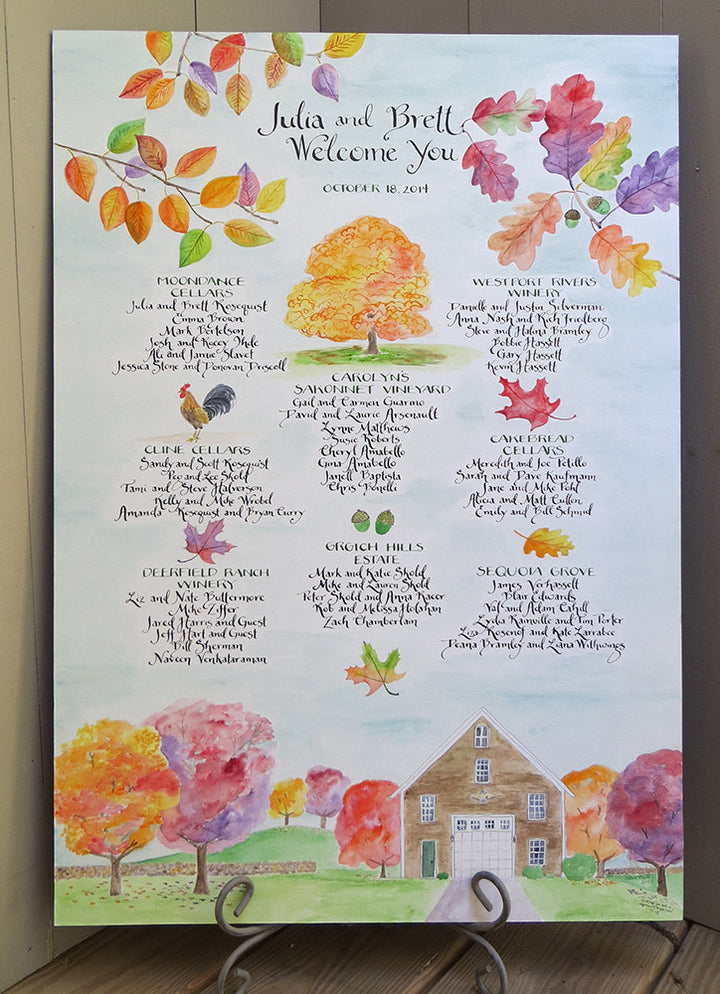 Julia and Brett
Welcome You
OCTOBER 18, 2014
MOONDANCE
CELLARS
Julia and Brett Rosequist
Emma Brown
Mark Bertelson
Josh and Kacey Ihde
Ali and Jamie Slavet
Jessica Stone and Donovan Driscoll
CLINE CELLARS
Sandy and Scott Rosequist
Peg and Lee Skold
Tami and Steve Halverson
Kelly and Mike Wrobel
Amanda Rosequist and Bryan Curry
DEERFIELD RANCH
WINERY
Liz and Nate Buttermore
Mike Ziffer
Jared Harris and Guest
Jeff Hart and Guest
Bill Sherman
Naveen Venkataraman
CAROLYN'S
SAKONNET VINEYARD
Gail and Carmen Guarino
David and Laurie Arsenault
Lynne Matthews
Susie Roberts
Cheryl Amabello
Gina Amabello
Janell Baptista
Chris Bonelli
GRGICH HILLS
ESTATE
Mark and Katie Skold
Mike and Lauren Skold
Peter Skold and Anna Racer
Rob and Melissa Holahan
Zach Chamberlain
WESTPORT RIVERS
WINERY
Danielle and Justin Silverman
Anna Nash and Rich Friedberg
Steve and Halina Bramley
Bobbie Hassett
Gary Hassett
Kevin Hassett
CAKEBREAD
CELLARS
Meredith and Joe Petillo
Sarah and Dave Kaufmann
Jane and Mike Pohl
Alicia and Matt Cullen
Emily and Bill Schmid
SEQUOIA GROVE
James Verhasselt
Blair Edwards
and Adam Cahill
Lydia Rainville and Tim Porter
Liza Rosenof and Kate Larrabee
Deana Bramley and Liana Withwings